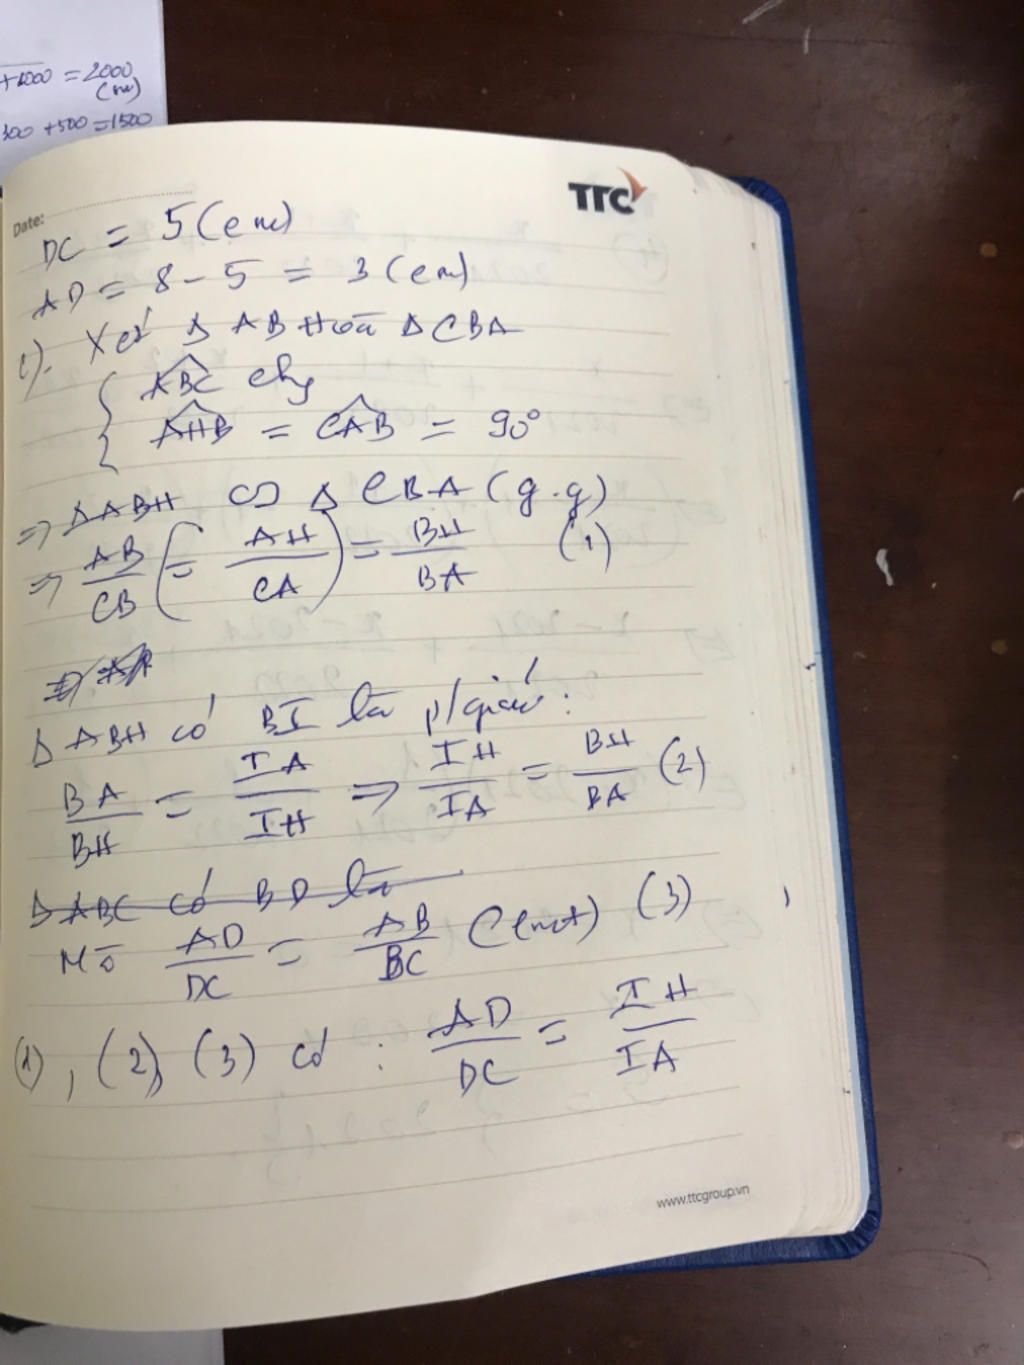 +1000 = 2000
(m)
+500 = 1500
TTC
Date:
DC = 5 (cm)
AD = 8 - 5 = 3 (cm)
c). Xét Δ ABH và Δ CBA
{ ABC chg
AHB = CAB = 90°
=> ΔABH ∽ Δ CBA (g.g)
=> AB/CB (= AH/CA) = BH/BA (1)
Δ ABH có BI là p/giác:
BA/BH = IA/IH => IH/IA = BH/BA (2)
Δ ABC có BD là
Mà AD/DC = AB/BC (cmt) (3)
(1), (2), (3) có : AD/DC = IH/IA
www.ttcgroup.vn